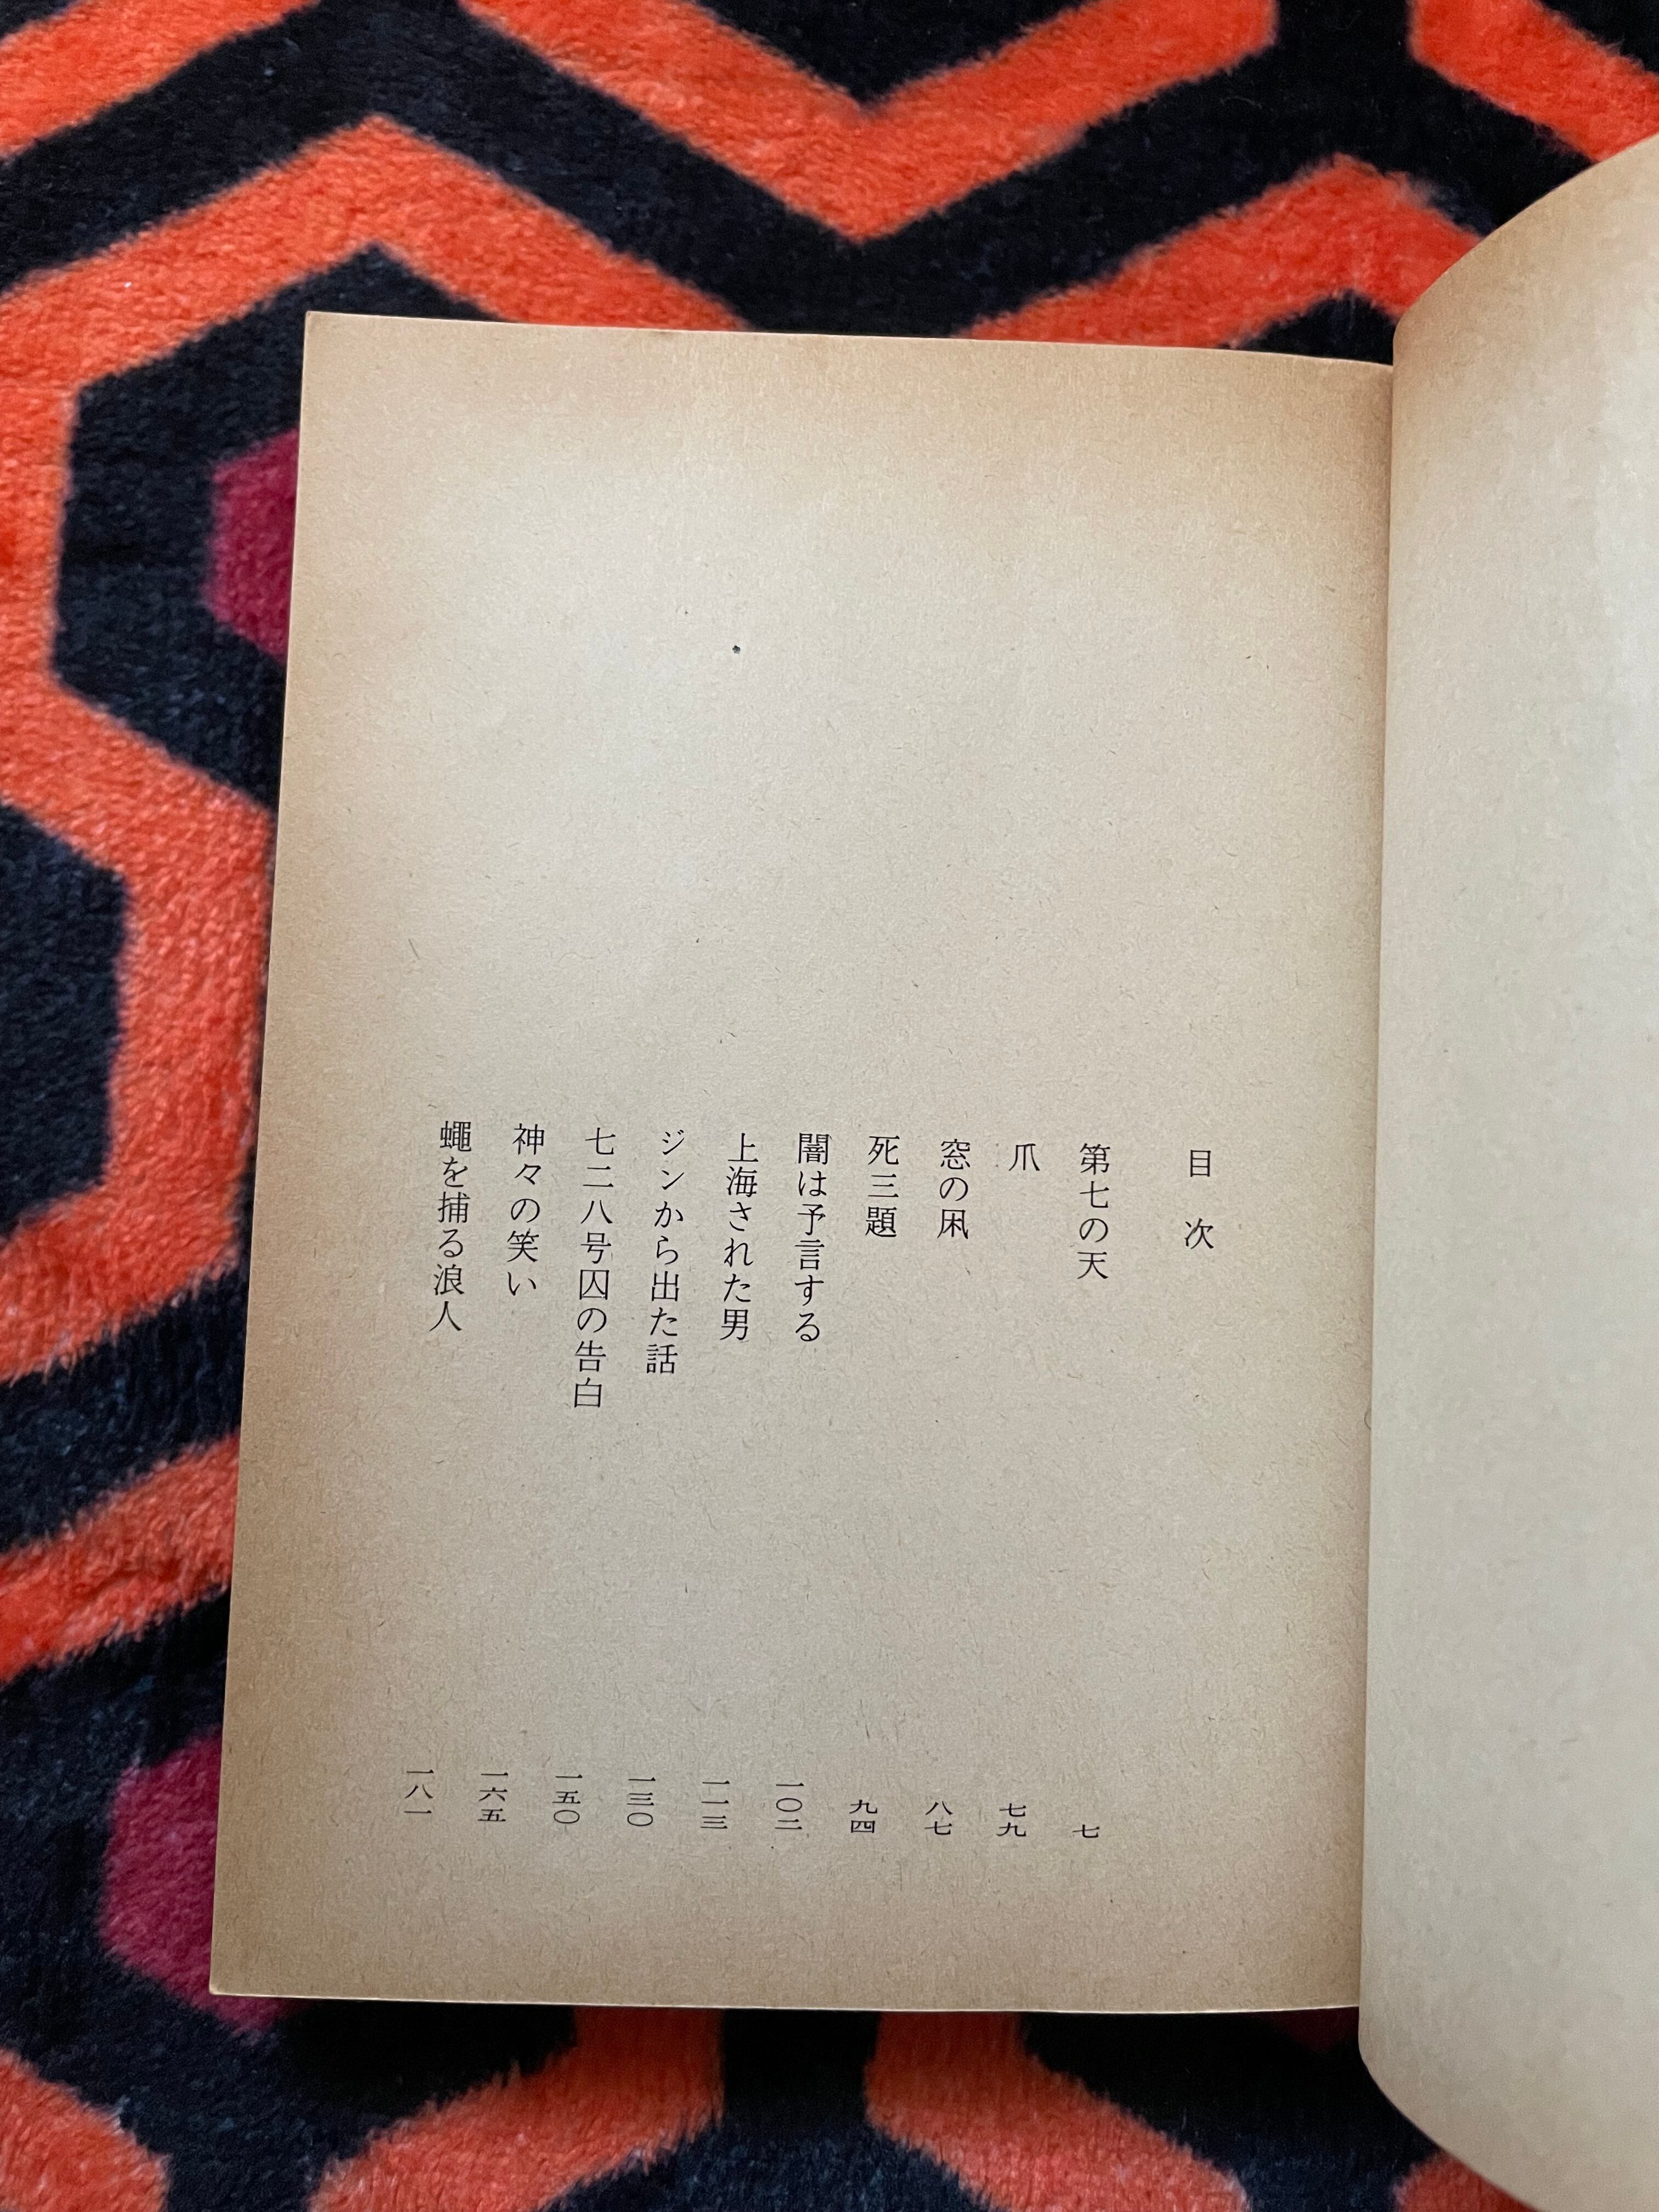 目次
第七の天
七
爪
七九
窓の凩
八七
死三題
九四
闇は予言する
一〇二
上海された男
一一三
ジンから出た話
一三〇
七二八号囚の告白
一五〇
神々の笑い
一六五
蠅を捕る浪人
一八一